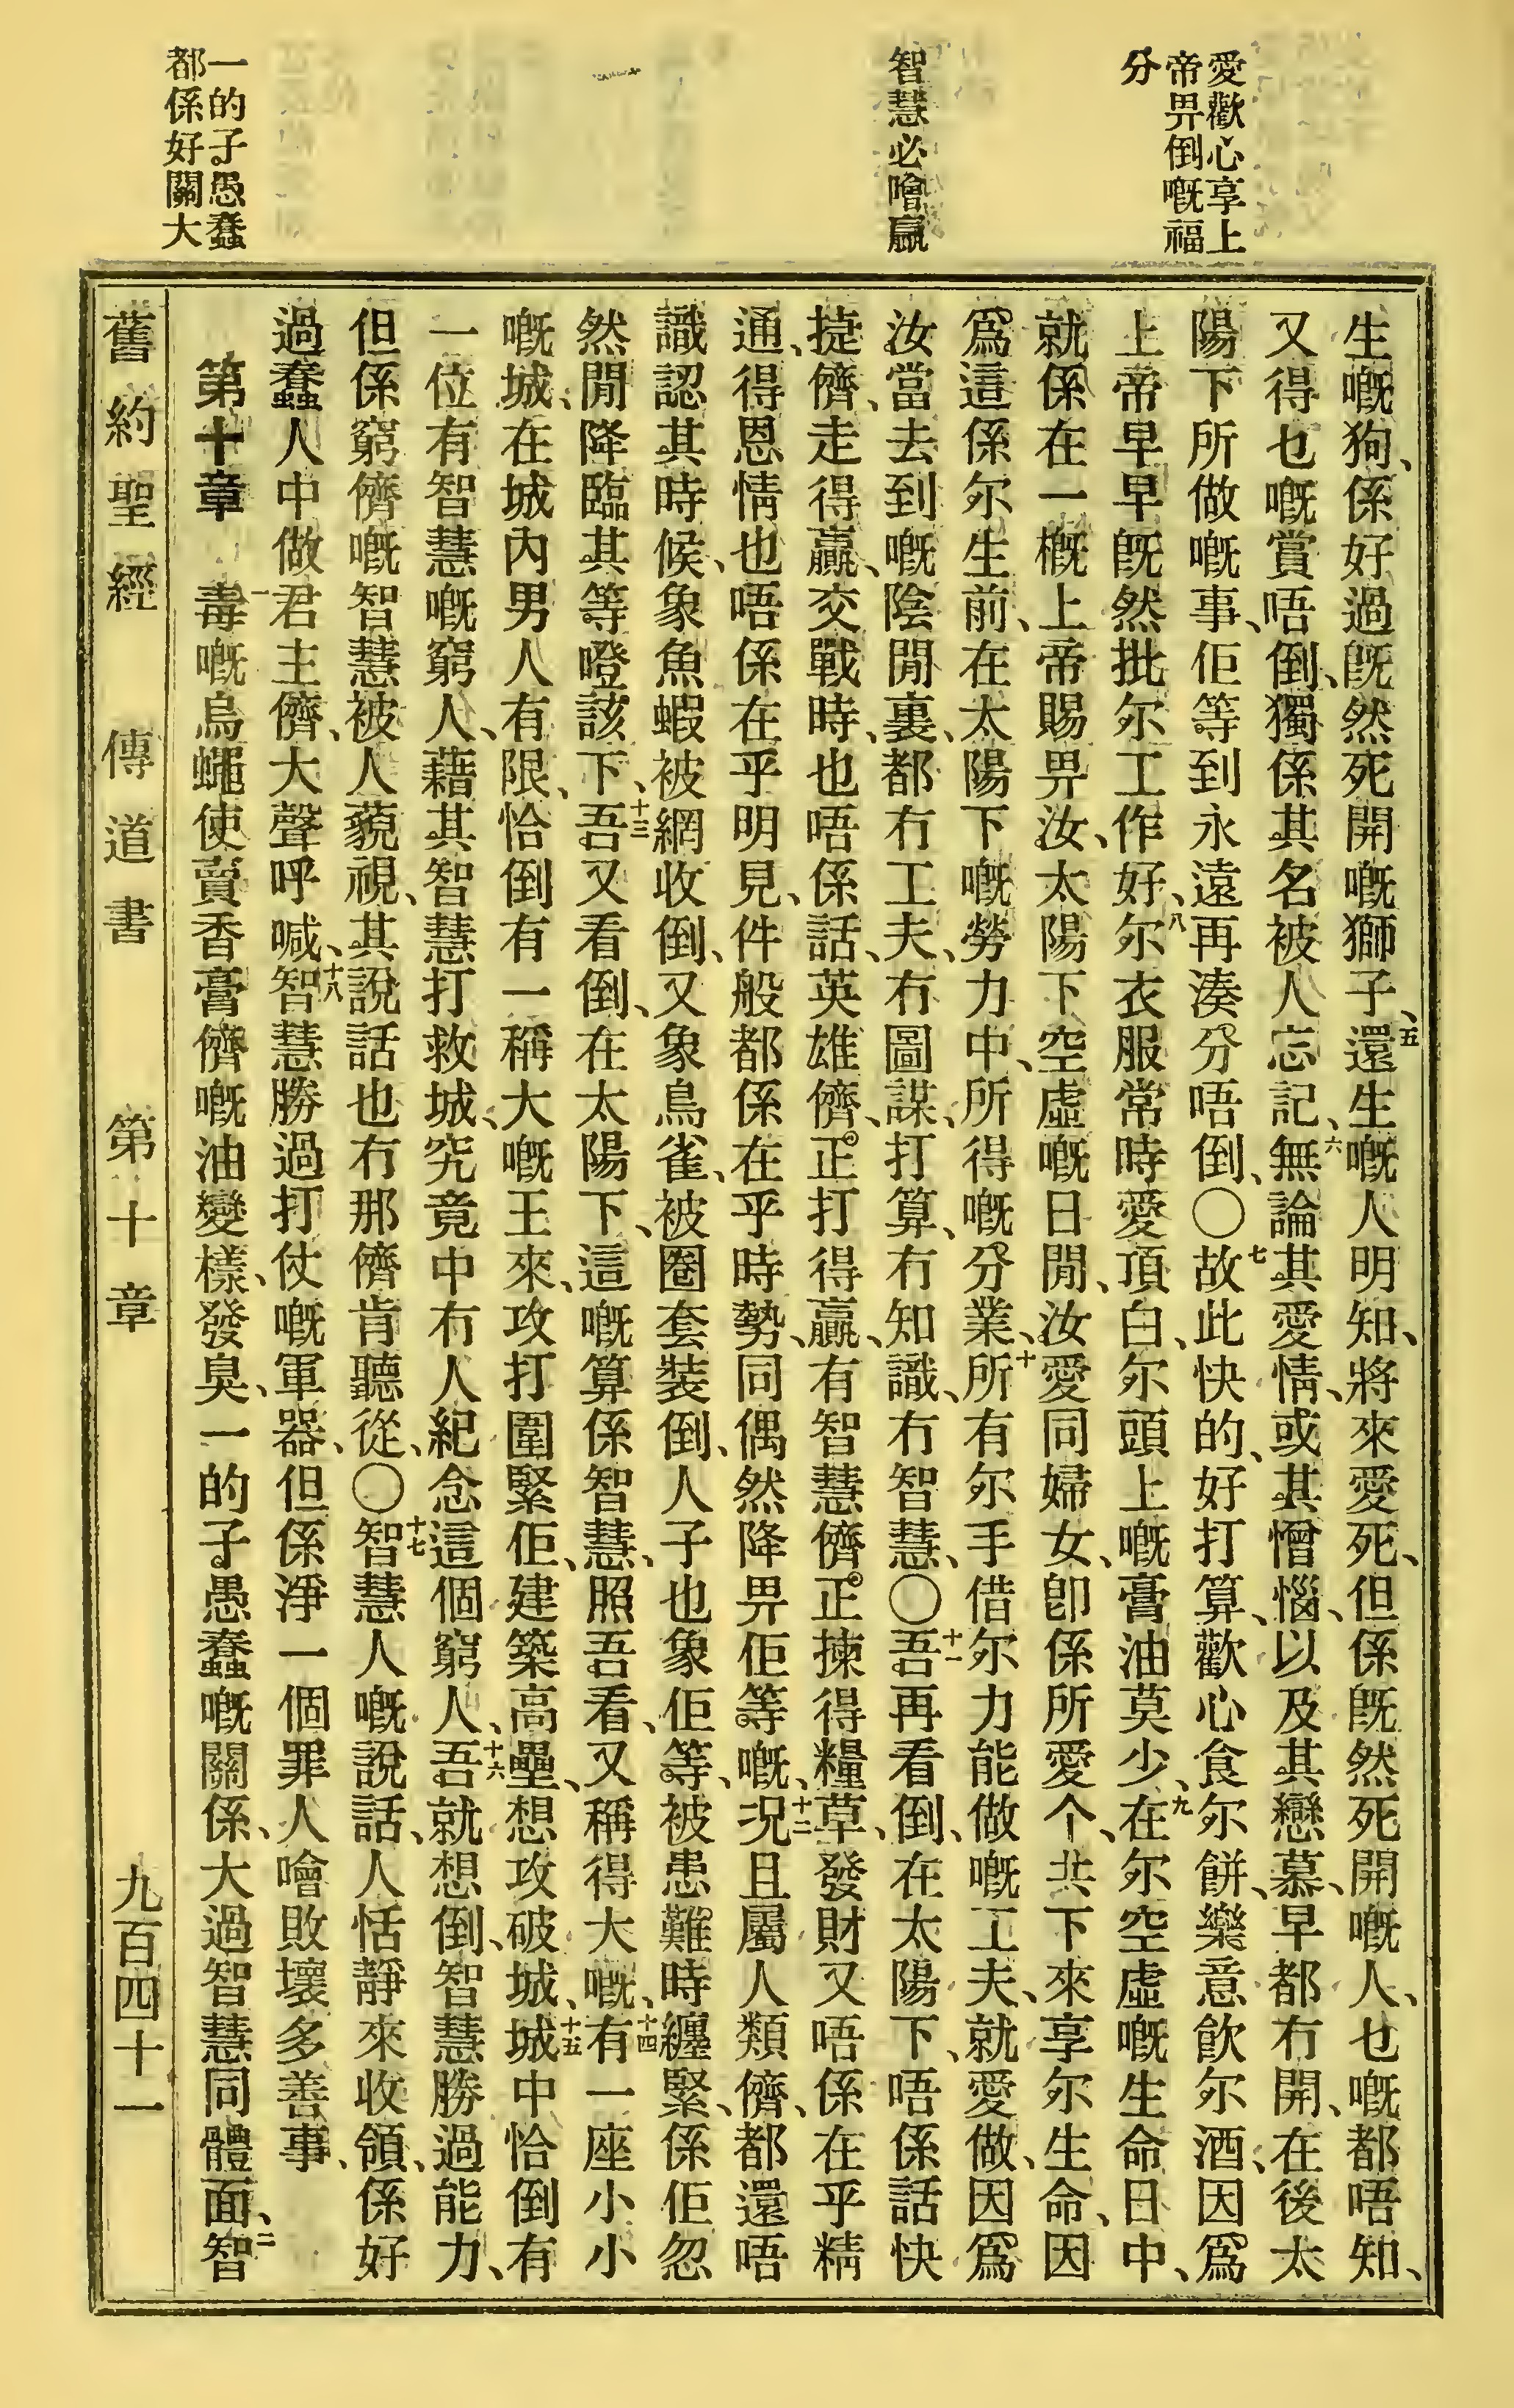 愛歡心享上
帝畀倒嘅福
分
智慧必噲贏
一的子愚蠢
都係好關大
生嘅狗、係好過旣然死開嘅獅子、五還生嘅人明知、將來愛死、但係旣然死開嘅人、乜嘅都唔知、
又得乜嘅賞唔倒、獨係其名被人忘記、六無論其愛情、或其憎惱、以及其戀慕、早都冇開、在後太
陽下所做嘅事、佢等到永遠再湊分唔倒、〇七故此快的、好打算、歡心食尔餅、樂意飲尔酒、因爲
上帝早早旣然批尔工作好、八尔衣服常時愛頂白、尔頭上嘅膏油莫少、九在尔空虛嘅生命日中、
就係在一槪上帝賜畀汝、太陽下空虛嘅日閒、汝愛同婦女、卽係所愛个、共下來享尔生命、因
爲這係尔生前、在太陽下嘅勞力中、所得嘅分業、十所有尔手借尔力能做嘅工夫、就愛做、因爲
汝當去到嘅陰閒裏、都冇工夫、冇圖謀、打算、冇知識、冇智慧、〇十一吾再看倒、在太陽下、唔係話快
捷儕、走得贏、交戰時、也唔係話、英雄儕、正打得贏、有智慧儕正揀得糧草、發財又唔係在乎精
通、得恩情也唔係在乎明見、件般都係在乎時勢、同偶然降畀佢等嘅、十二況且屬人類儕、都還唔
識認其時候、象魚蝦被網收倒、又象鳥雀、被圈套裝倒、人子也象佢等、被患難時纏緊、係佢忽
然閒降臨其等噔該下、十三吾又看倒、在太陽下、這嘅算係智慧、照吾看、又稱得大嘅、十四有一座小小
嘅城、在城內男人有限、恰倒有一稱大嘅王來、攻打圍緊佢、建築高壘、想攻破城、十五城中恰倒有
一位有智慧嘅窮人、藉其智慧打救城、究竟中冇人紀念這個窮人、十六吾就想倒、智慧勝過能力、
但係窮儕嘅智慧被人藐視、其說話也冇那儕肯聽從、〇十七智慧人嘅說話、人恬靜來收領、係好
過蠢人中做君主儕、大聲呼喊、十八智慧勝過打仗嘅軍器、但係淨一個罪人噲敗壞多善事、
第十章　一毒嘅烏蠅使賣香膏儕嘅油變樣、發臭、一的子愚蠢嘅關係、大過智慧同體面、二智
舊約聖經　傳道書　第十章　九百四十一